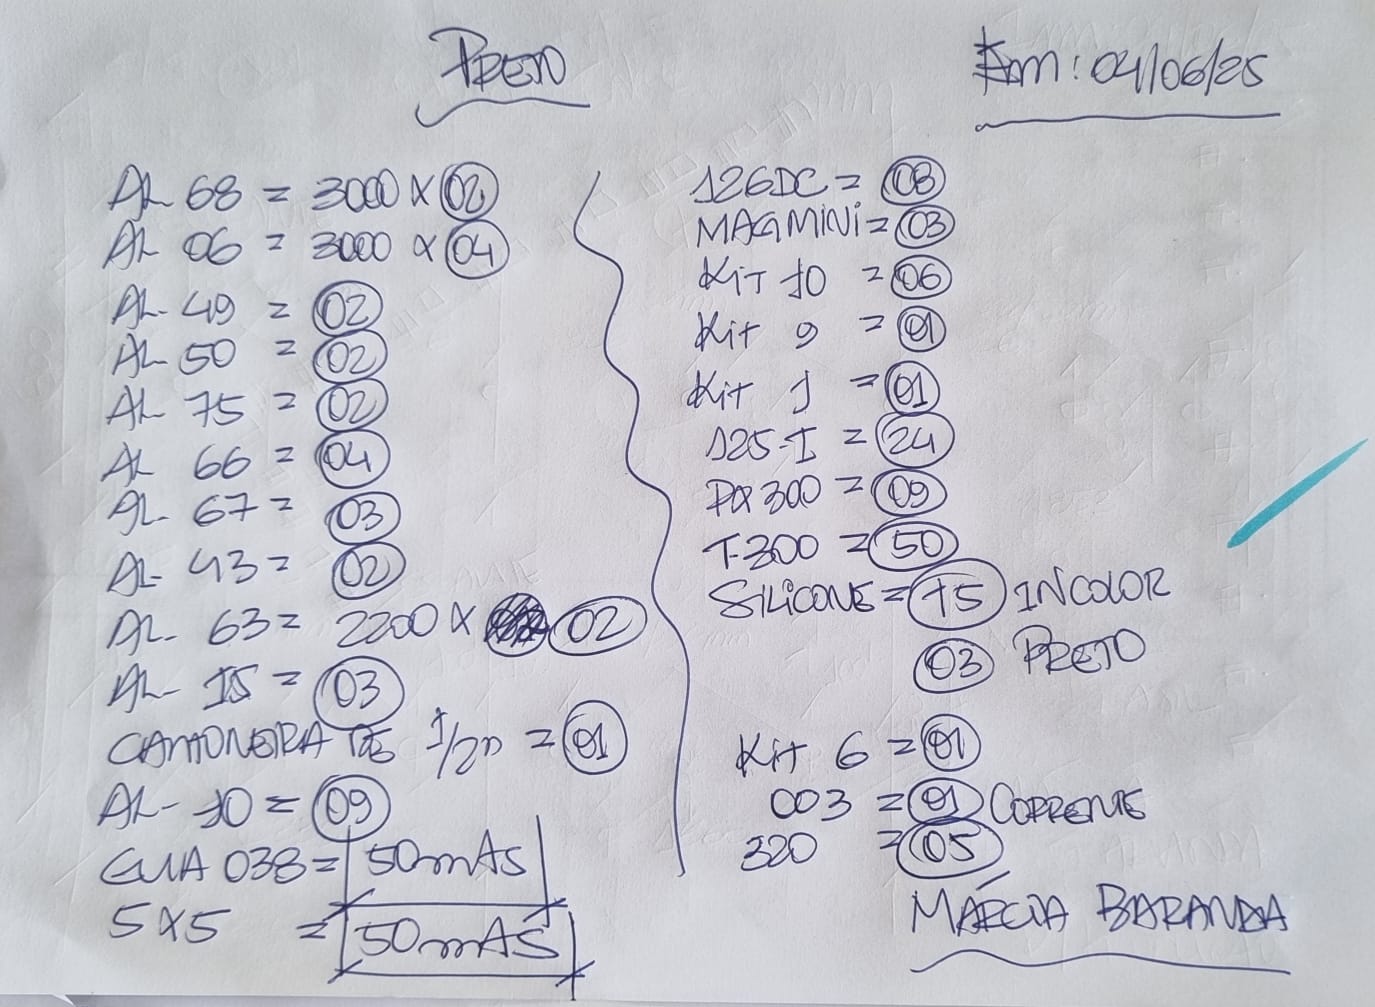 PRETO
Em: 04/06/25
AL 68 = 3000 X 02
AL 06 = 3000 X 04
AL- 49 = 02
AL 50 = 02
AL 75 = 02
AL 66 = 04
AL- 67 = 03
AL- 43 = 02
AL- 63 = 2200 X 02
AL- 15 = 03
CANTONEIRA DE 1/2" = 01
AL- 10 = 09
GUIA 038 = 50mts
5X5 = 50mts
126DC = 08
MAGMINI = 03
Kit 10 = 06
Kit 9 = 01
Kit 1 = 01
125-I = 24
PX 300 = 09
T-300 = 50
SILICONE = 15 INCOLOR
03 PRETO
Kit 6 = 01
003 = 01 CORRENTE
320 = 05
MÁRCIA BARANDA